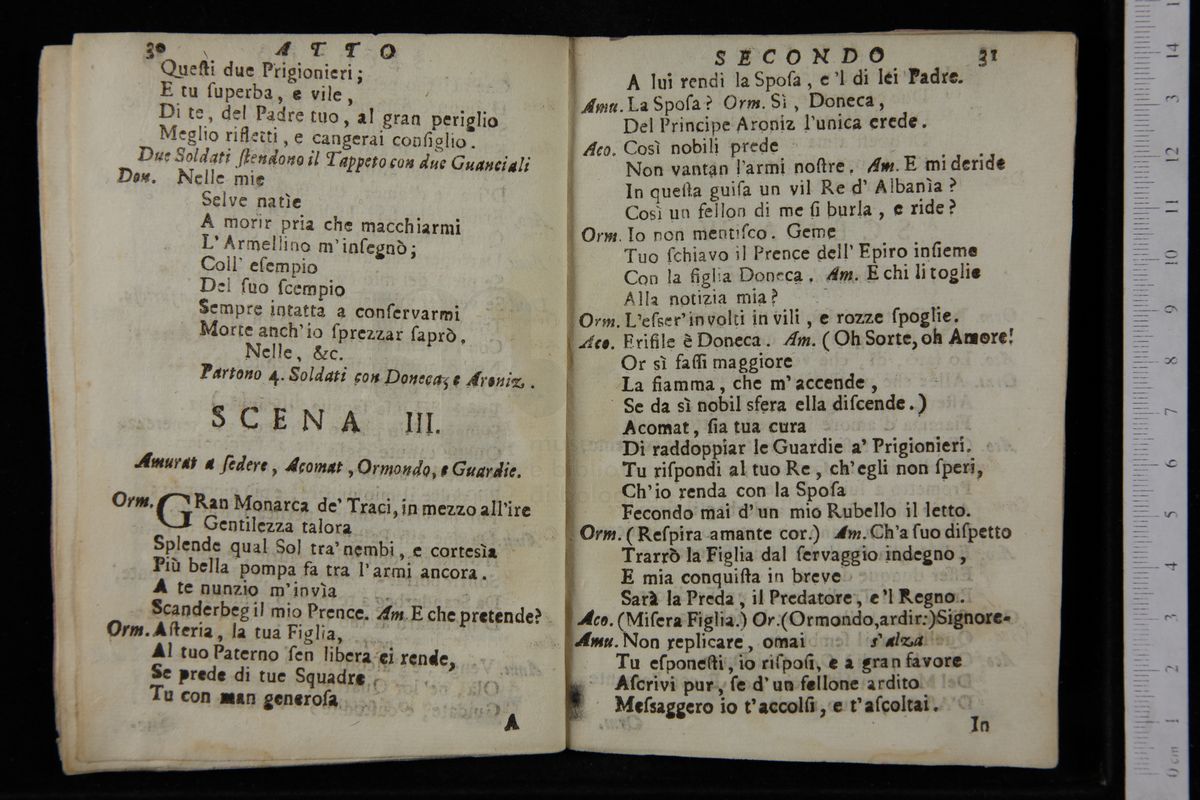 30 ATTO
Queſti due Prigionieri;
E tu ſuperba, e vile,
Di te, del Padre tuo, al gran periglio
Meglio rifletti, e cangerai conſiglio.
Due Soldati ſtendono il Tappeto con due Guanciali
Don. Nelle mie
Selve natìe
A morir pria che macchiarmi
L'Armellino m'inſegnò;
Coll' eſempio
Del ſuo ſcempio
Sempre intatta a conſervarmi
Morte anch'io ſprezzar ſaprò.
Nelle, &c.
Partono 4. Soldati con Doneca, e Aroniz.
SCENA III.
Amurat a ſedere, Acomat, Ormondo, e Guardie.
Orm. GRan Monarca de' Traci, in mezzo all'ire
Gentilezza talora
Splende qual Sol tra' nembi, e cortesìa
Più bella pompa fa tra l'armi ancora.
A te nunzio m'invìa
Scanderbeg il mio Prence. Am. E che pretende?
Orm. Aſteria, la tua Figlia,
Al tuo Paterno ſen libera ei rende,
Se prede di tue Squadre
Tu con man generoſa
A
SECONDO 31
A lui rendi la Spoſa, e 'l di lei Padre.
Amu. La Spoſa? Orm. Sì, Doneca,
Del Principe Aroniz l'unica erede.
Aco. Così nobili prede
Non vantan l'armi noſtre. Am. E mi deride
In queſta guiſa un vil Re d' Albanìa?
Così un fellon di me ſi burla, e ride?
Orm. Io non mentiſco. Geme
Tuo ſchiavo il Prence dell' Epiro inſieme
Con la figlia Doneca. Am. E chi li toglie
Alla notizia mia?
Orm. L'eſser' involti in vili, e rozze ſpoglie.
Aco. Erifile è Doneca. Am. (Oh Sorte, oh Amore!
Or sì faſſi maggiore
La fiamma, che m'accende,
Se da sì nobil sfera ella diſcende.)
Acomat, ſia tua cura
Di raddoppiar le Guardie a' Prigionieri.
Tu riſpondi al tuo Re, ch'egli non ſperi,
Ch'io renda con la Spoſa
Fecondo mai d'un mio Rubello il letto.
Orm. (Reſpira amante cor.) Am. Ch'a ſuo diſpetto
Trarrò la Figlia dal ſervaggio indegno,
E mia conquiſta in breve
Sarà la Preda, il Predatore, e 'l Regno.
Aco. (Miſera Figlia.) Or. (Ormondo, ardir.) Signore-
Amu. Non replicare, omai s'alza
Tu eſponeſti, io riſpoſi, e a gran favore
Aſcrivi pur, ſe d'un fellone ardito
Meſsaggero io t'accolſi, e t'aſcoltai.
In
0 cm 1 2 3 4 5 6 7 8 9 10 11 12 3 14